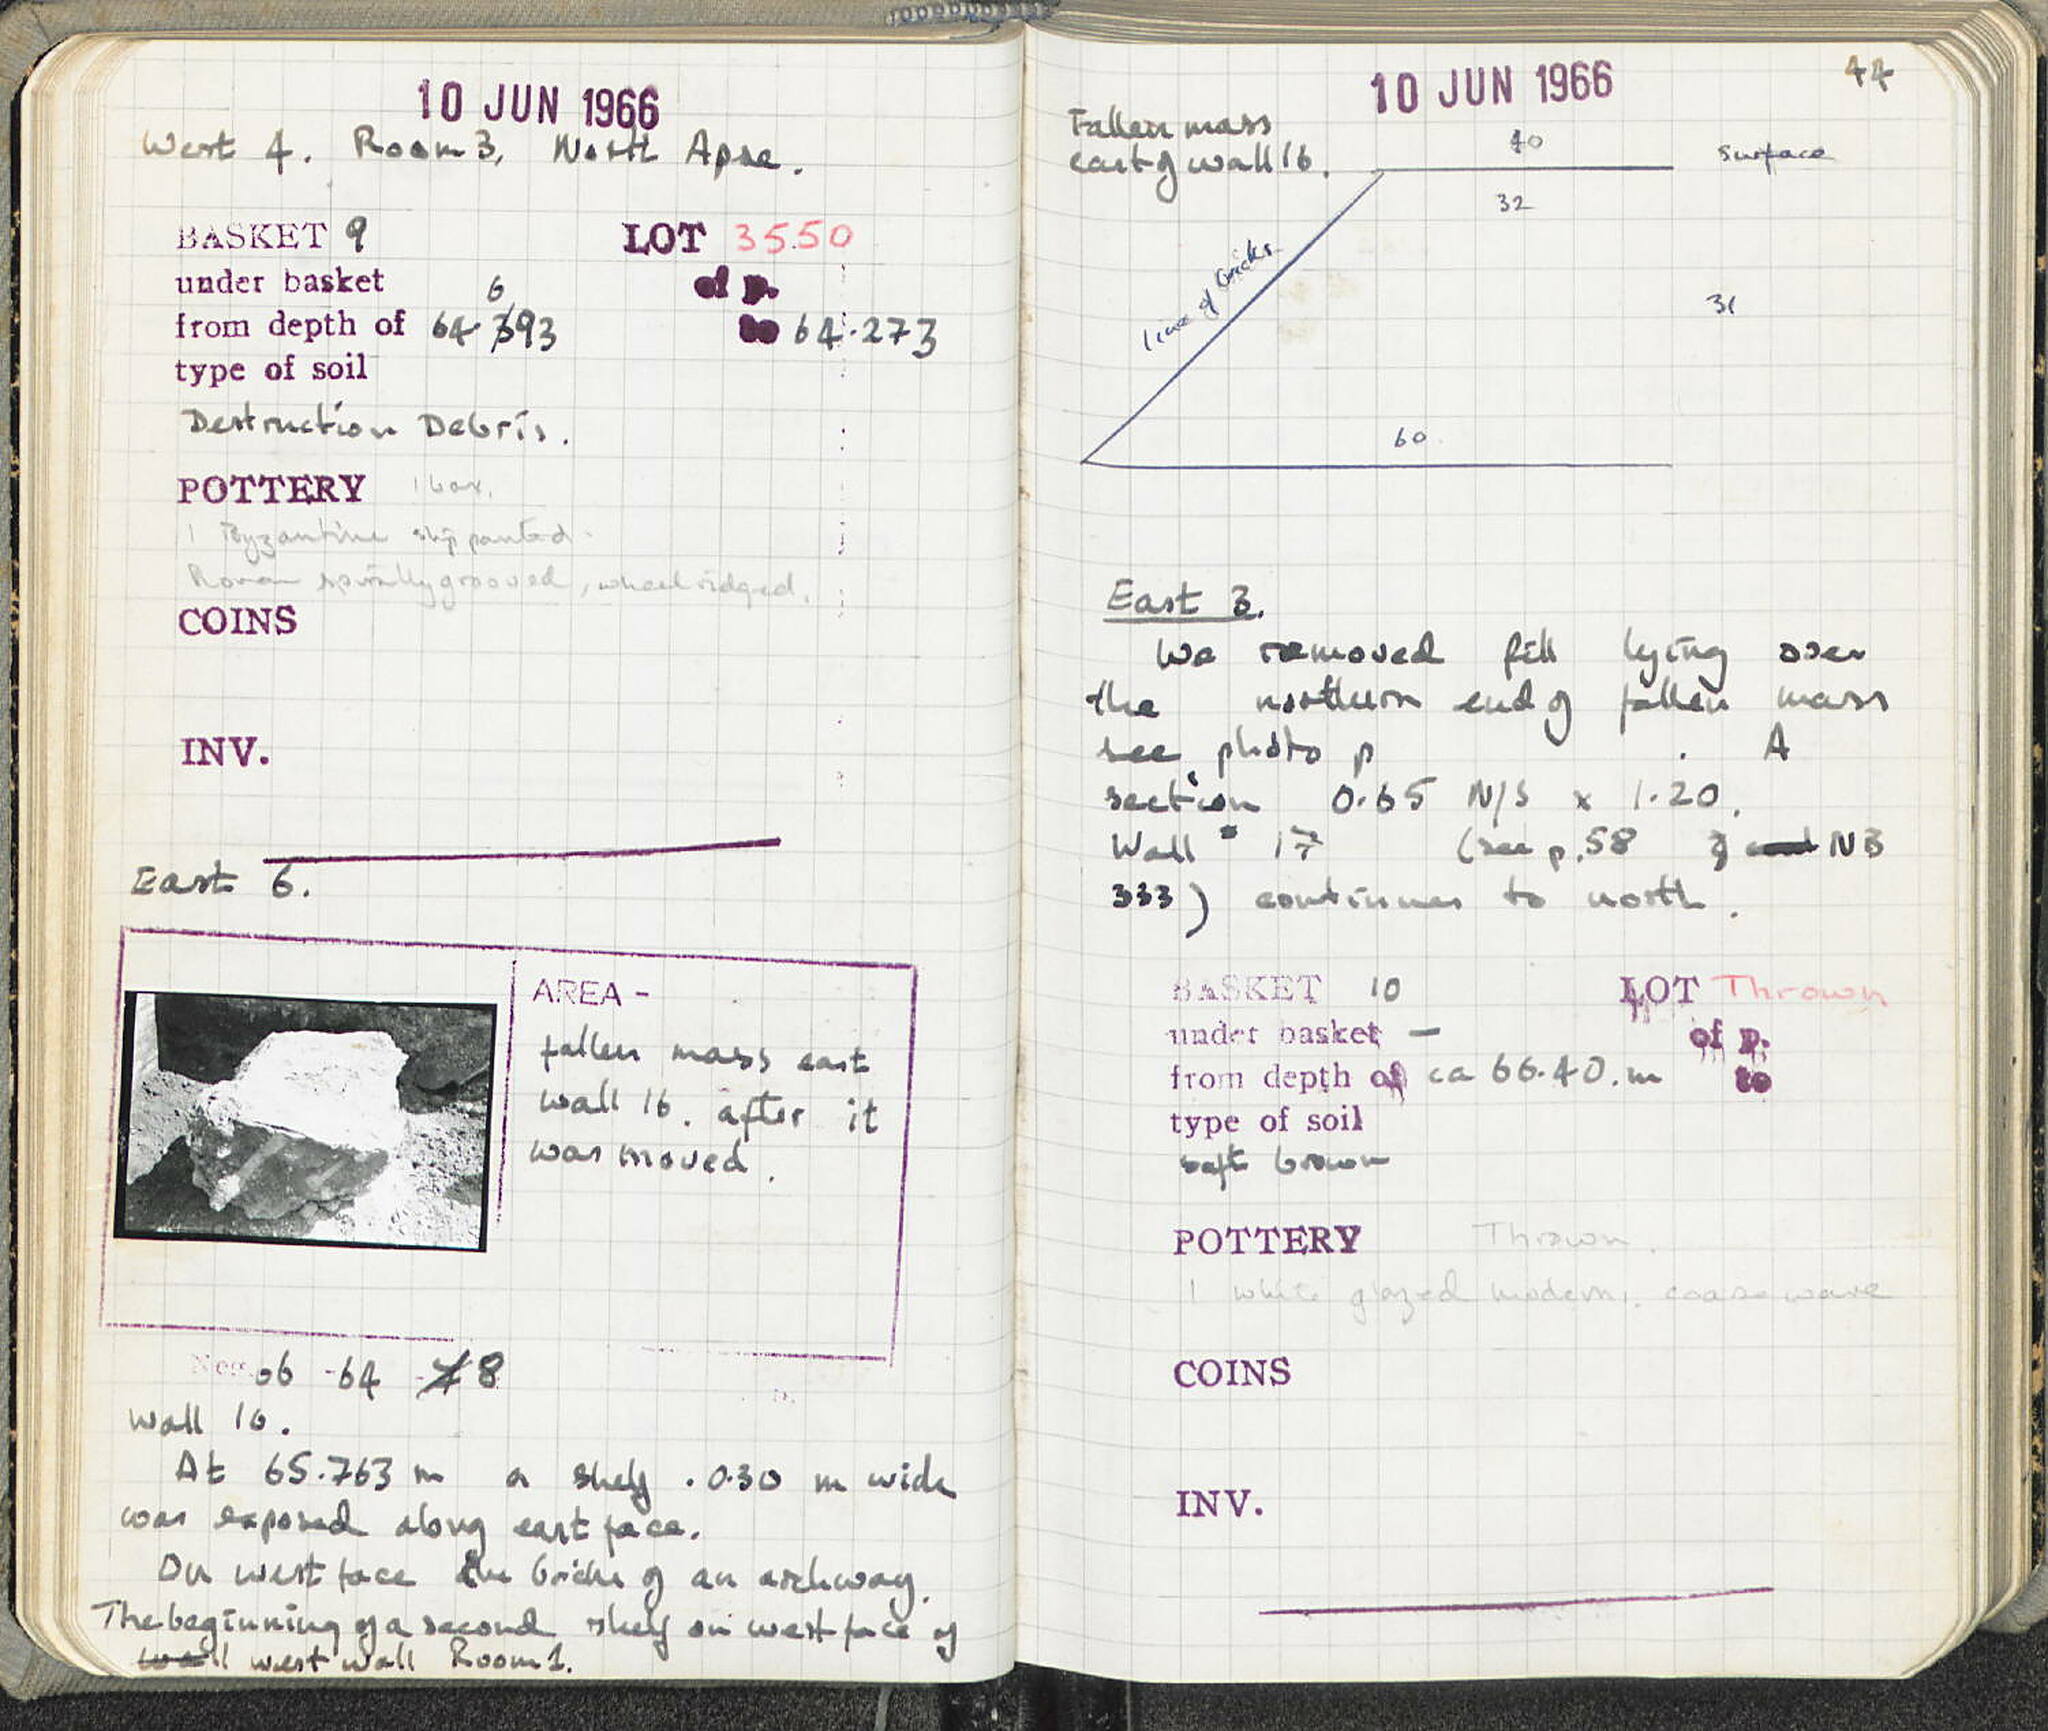 10 JUN 1966
West 4. Room 3, North Apse.
BASKET 9 LOT 3550
under basket of p.
from depth of 64.693 to 64.273
type of soil
Destruction Debris.
POTTERY 1 box.
1 Byzantine slip painted.
Roman spirally grooved, wheel ridged.
COINS
INV.
East 6.
AREA -
fallen mass east
wall 16. after it
was moved.
Neg. 66 -64 -8
Wall 16.
At 65.763 m a shelf .0.30 m wide
was exposed along east face.
On west face the bricks of an archway.
The beginning of a second shelf on west face of
wall west wall Room 1.
10 JUN 1966
44
Fallen mass
east of wall 16.
40 surface
32
line of bricks
31
60
East 3.
We removed fill lying over
the northern end of fallen mass
see photo p . A
section 0.65 N/S x 1.20.
Wall 17 (see p. 58 of NB
333) continues to north.
BASKET 10 LOT Thrown
under basket — of p.
from depth of ca 66.40.m to
type of soil
soft brown
POTTERY Thrown.
1 white glazed modern, coarse ware
COINS
INV.